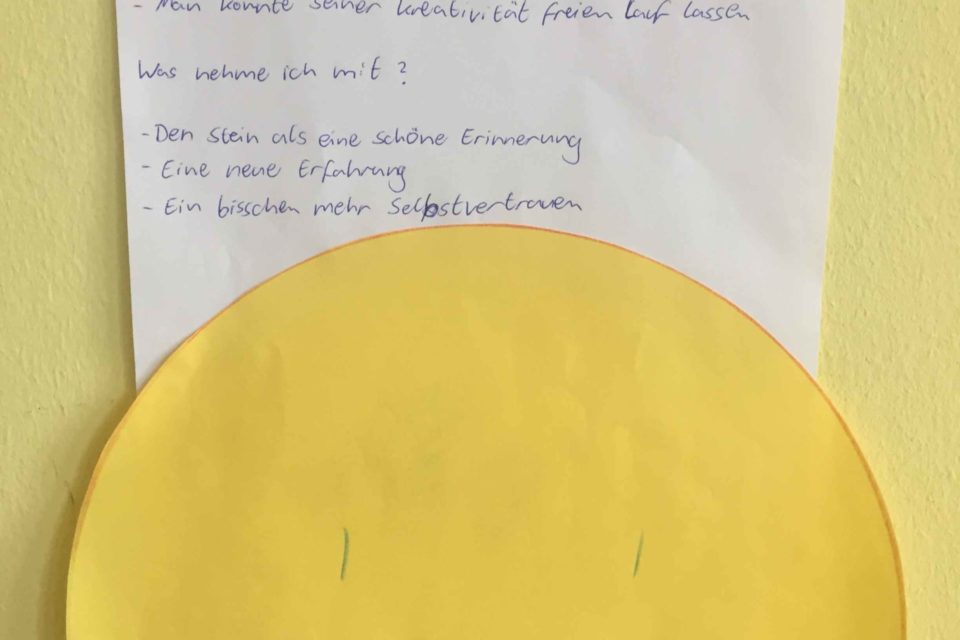 - Man konnte seiner Kreativität freien Lauf lassen
Was nehme ich mit ?
- Den Stein als eine schöne Erinnerung
- Eine neue Erfahrung
- Ein bisschen mehr Selbstvertrauen